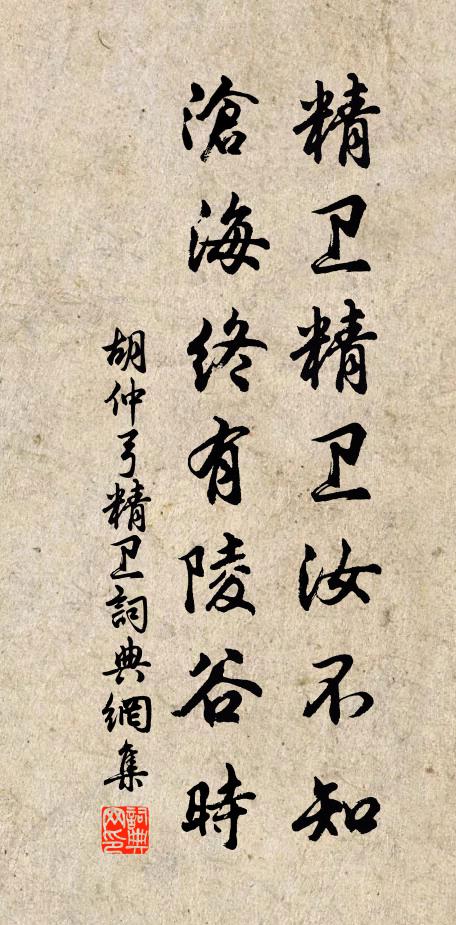 精卫精卫汝不知
滄海终有陵谷時
胡仲弓精卫詞典網集
詞典网印